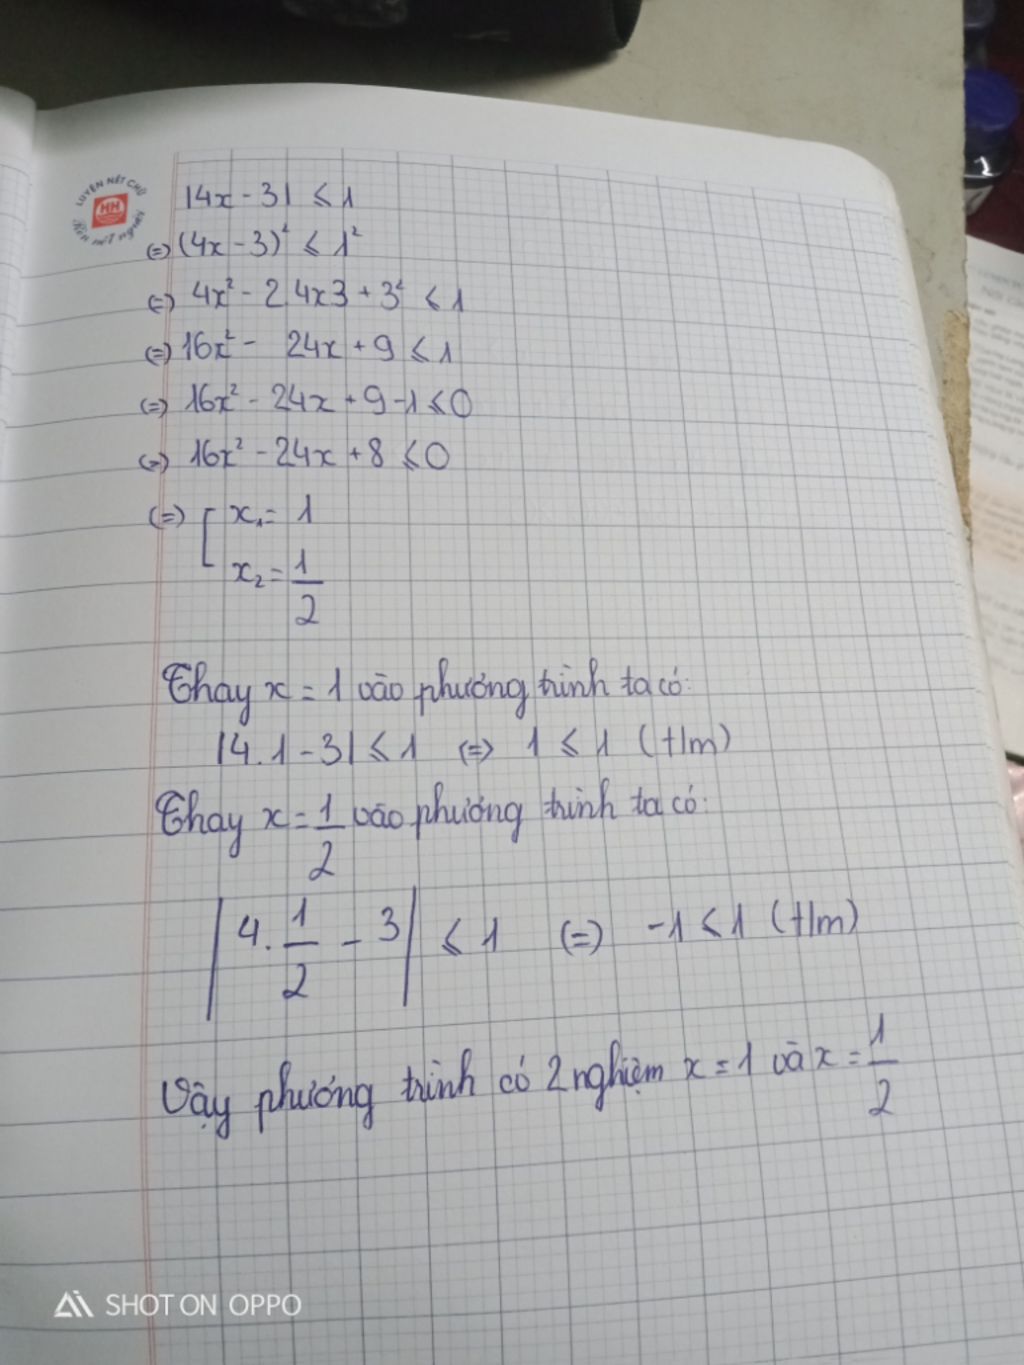 LUYỆN NÉT CHỮ
HH
Rèn nết người
|4x - 3| ≤ 1
(=) (4x - 3)² ≤ 1²
(=) 4x² - 2.4x3 + 3² ≤ 1
(=) 16x² - 24x + 9 ≤ 1
(=) 16x² - 24x + 9 - 1 ≤ 0
(=) 16x² - 24x + 8 ≤ 0
(=) [ x₁ = 1
x₂ = 1/2
Thay x = 1 vào phương trình ta có:
|4.1 - 3| ≤ 1 (=) 1 ≤ 1 (tlm)
Thay x = 1/2 vào phương trình ta có:
|4. 1/2 - 3| ≤ 1 (=) -1 ≤ 1 (tlm)
Vậy phương trình có 2 nghiệm x = 1 và x = 1/2
SHOT ON OPPO